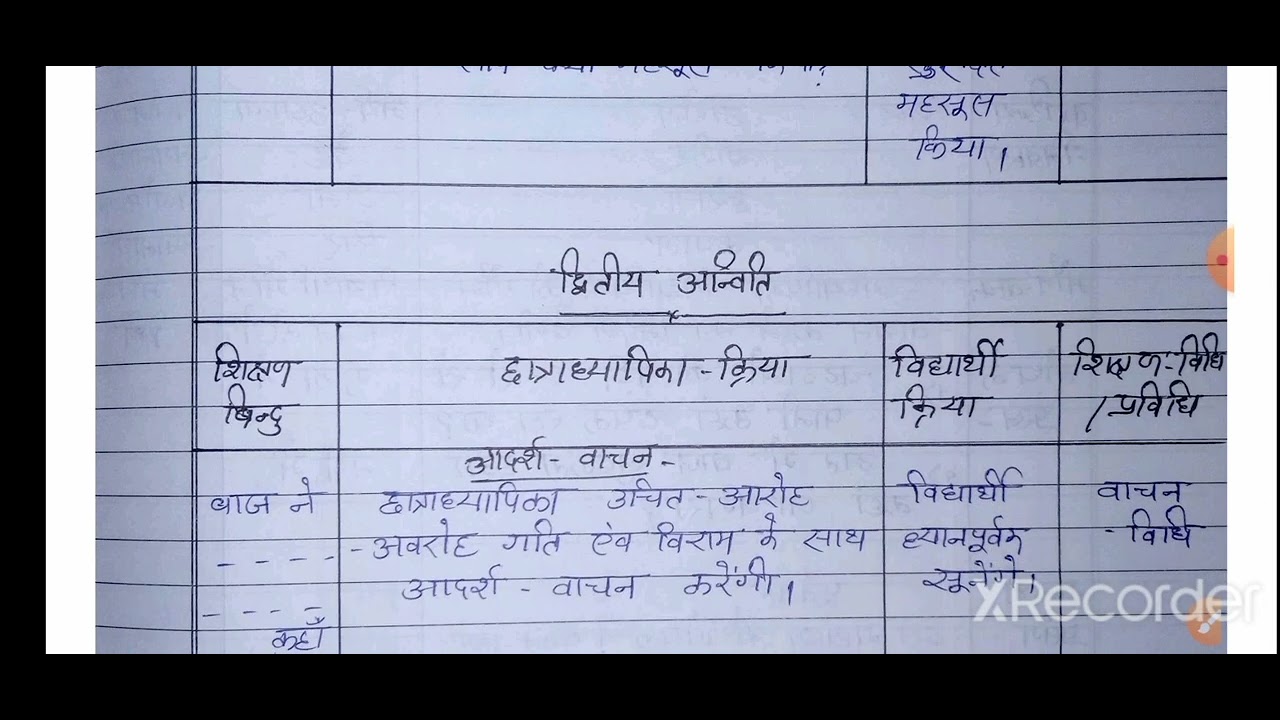 महसूस
किया।
द्वितीय अन्विति
शिक्षण बिन्दु
छात्राध्यापिका-क्रिया
विद्यार्थी क्रिया
शिक्षण-विधि / प्रविधि
आदर्श - वाचन -
बाज ने छात्राध्यापिका उचित - आरोह विद्यार्थी वाचन
- - - - - अवरोह गति एंव विराम के साथ ध्यानपूर्वक - विधि
आदर्श - वाचन करेंगी। सूनेंगे।
- - - - -
कहाँ
XRecorder